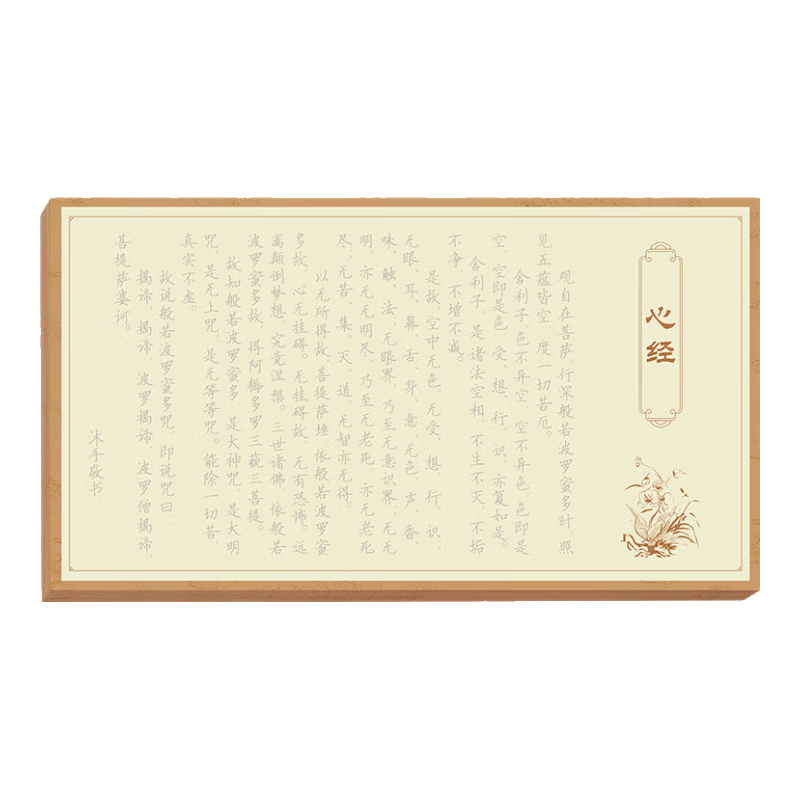 心经
观自在菩萨，行深般若波罗蜜多时，照
见五蕴皆空，度一切苦厄。
舍利子，色不异空，空不异色，色即是
空，空即是色，受、想、行、识，亦复如是。
舍利子，是诸法空相，不生不灭，不垢
不净，不增不减。
是故，空中无色，无受、想、行、识，
无眼、耳、鼻、舌、身、意，无色、声、香、
味、触、法，无眼界，乃至无意识界，无无
明，亦无无明尽，乃至无老死，亦无老死
尽，无苦、集、灭、道，无智亦无得。
以无所得故，菩提萨埵，依般若波罗蜜
多故，心无挂碍。无挂碍故，无有恐怖。远
离颠倒梦想，究竟涅槃。三世诸佛，依般若
波罗蜜多故，得阿耨多罗三藐三菩提。
故知般若波罗蜜多，是大神咒，是大明
咒，是无上咒，是无等等咒。能除一切苦，
真实不虚。
故说般若波罗蜜多咒，即说咒曰：
揭谛，揭谛，波罗揭谛，波罗僧揭谛，
菩提萨婆诃。
沐手敬书